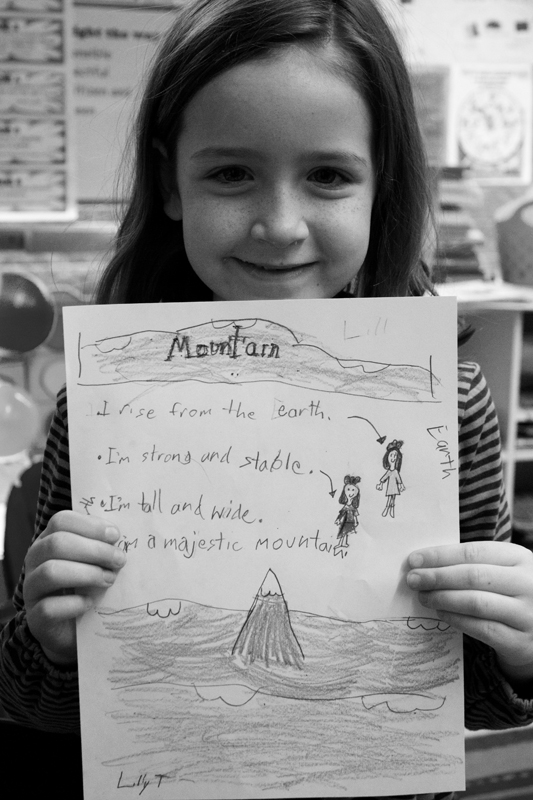 ight the wa
Lill
Mountain
I rise from the earth.
Earth
•I'm strong and stable.
•I'm tall and wide.
i'm a majestic mountain.
Lilly T